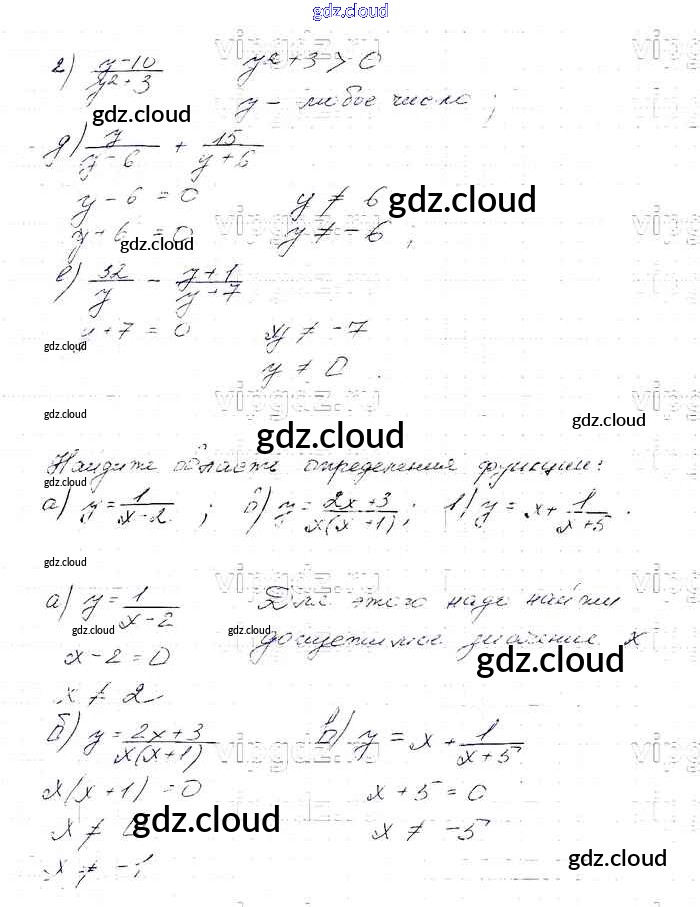 gdz.cloud
г) (y-10)/(y²+3)    y²+3 > 0
y - любое число;
gdz.cloud
д) y/(y-6) + 15/(y+6)
y-6 = 0    y ≠ 6 gdz.cloud
y+6 = 0    y ≠ -6;
gdz.cloud
е) 32/y - (y+1)/(y+7)
y+7 = 0    y ≠ -7
gdz.cloud    y ≠ 0.
gdz.cloud    gdz.cloud
gdz.cloud
Найдите область определения функции:
gdz.cloud
а) y = 1/(x-2); б) y = (2x+3)/(x(x+1)); в) y = x + 1/(x+5).
gdz.cloud
а) y = 1/(x-2)    Для этого надо найти
gdz.cloud    gdz.cloud    допустимое значение x
x-2 = 0    gdz.cloud
x ≠ 2
б) y = (2x+3)/(x(x+1))    в) y = x + 1/(x+5)
x(x+1) = 0    x+5 = 0
x ≠    gdz.cloud    x ≠ -5
x ≠ -1    gdz.cloud